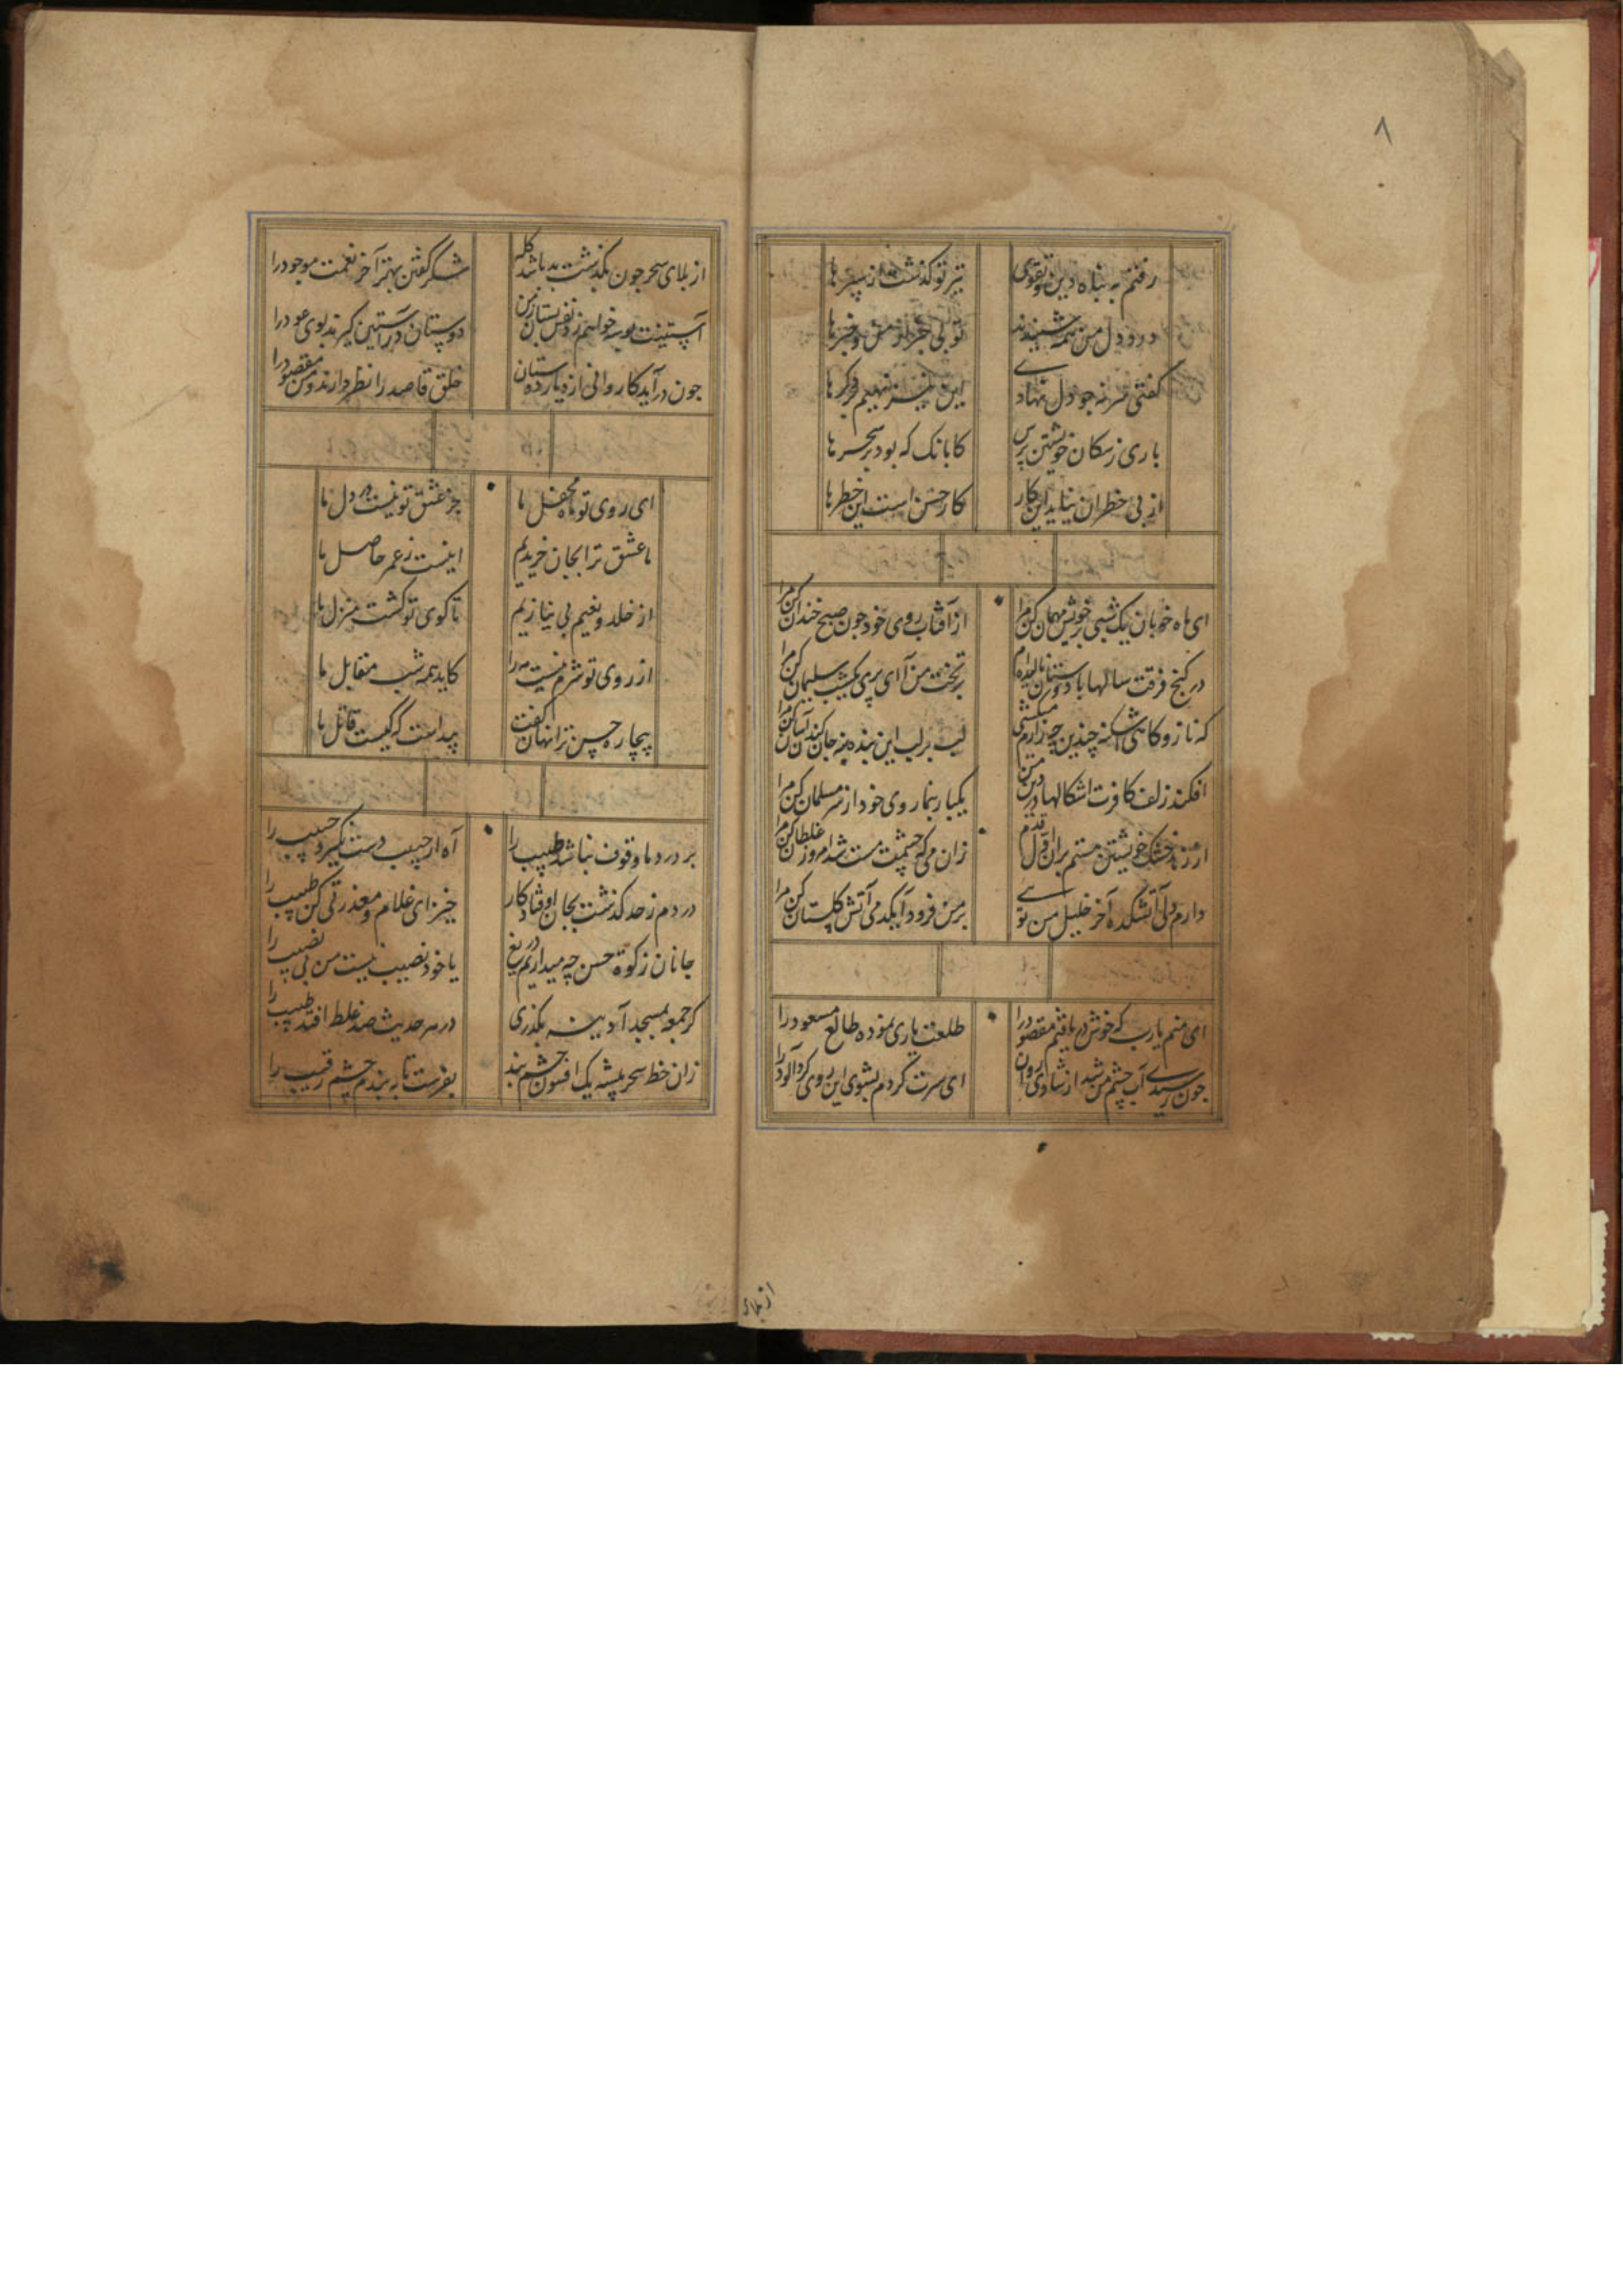 ۸
رفتم به پناه دین و تقوی تیر تو گذشت از سپرها
درد دل من همه شنیدند تو بی خبر از من و خبرها
کفتی سر نه جو دل نهادی این نیز نهیم فرکرها
باری ز سکان خویشتن پرس کا بانک که بود بر سحرها
از بی خطران نیاید این کار کار حسن است این خطرها
ای ماه خوبان یک شبی بر خویش مهمان کن مرا از آفتاب روی خود جون صبح خندان کن مرا
در کنج فرقت سالها با دوستان بر تخت من آ ای پری یکشب سلیمان کن مرا
که ناز و کاهی چندین چه زارم میکشی لب بر لب این بنده نه جان کندن آسان کن مرا
افکند زلف کافرت اشکالها در دین من یکبار بنما روی خود از سر مسلمان کن مرا
از زهد خشک خویشتن هستم بران قول قدم زان می که چشمت مست شد امروز غلطان کن مرا
دارم دلی آتشکده آخر خلیل من توی بر من فرود آ یکدمی آتش کلستان کن مرا
ای منم یارب که خوش دریافتم مقصود را طلعت یاری نموده طالع مسعود را
جون رسیدی آب چشم من شد از شادی روان ای سرت کردم بشوی این روی کردآلود را
از بلای
از بلای سحر جون بکذشت بد باشد کله شکر کفتن بهتر آخر نعمت موجود را
آستینت بوسه خواهم زد نفس بستان ز من دوستان در آستین کیرند بوی عود را
جون در آید کاروانی از ره یار دستان خلق قاصد را نظر دارند و من مقصود را
ای روی تو ماه محفل ما جز عشق تو نیست در دل ما
ما عشق ترا بجان خریدیم اینست ز عمر حاصل ما
از خلد و نعیم بی نیازیم تا کوی تو کشت منزل ما
از روی تو شرم نیست مه را کاید همه شب مقابل ما
بیچاره حسن ترا نهان کفت پیداست که کیست قاتل ما
بر درد ما وقوف نباشد طبیب را آه ار حبیب دست نکیرد حبیب را
دردم ز حد کذشت بجان اوفتاد کار خیز ای غلام و معذرتی کن طبیب را
جانان زکوة حسن چه میداریم دریغ یا خود نصیب نیست من بی نصیب را
کر جمعه بمسجد آدینه بکذری در هر حدیث صد غلط افتد خطیب را
زان خط سحر پیشه یک افسون چشم بند بفرست تا به بندم چشم رقیب را